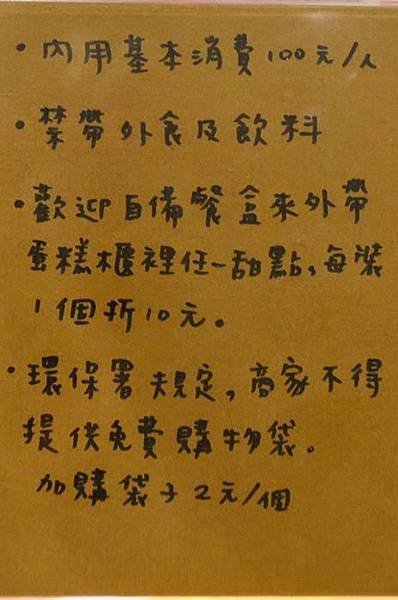 ・內用基本消費100元/人
・禁帶外食及飲料
・歡迎自備餐盒來外帶
蛋糕櫃裡任一甜點，每裝
1個折10元。
・環保署規定，商家不得
提供免費購物袋。
加購袋子2元/個